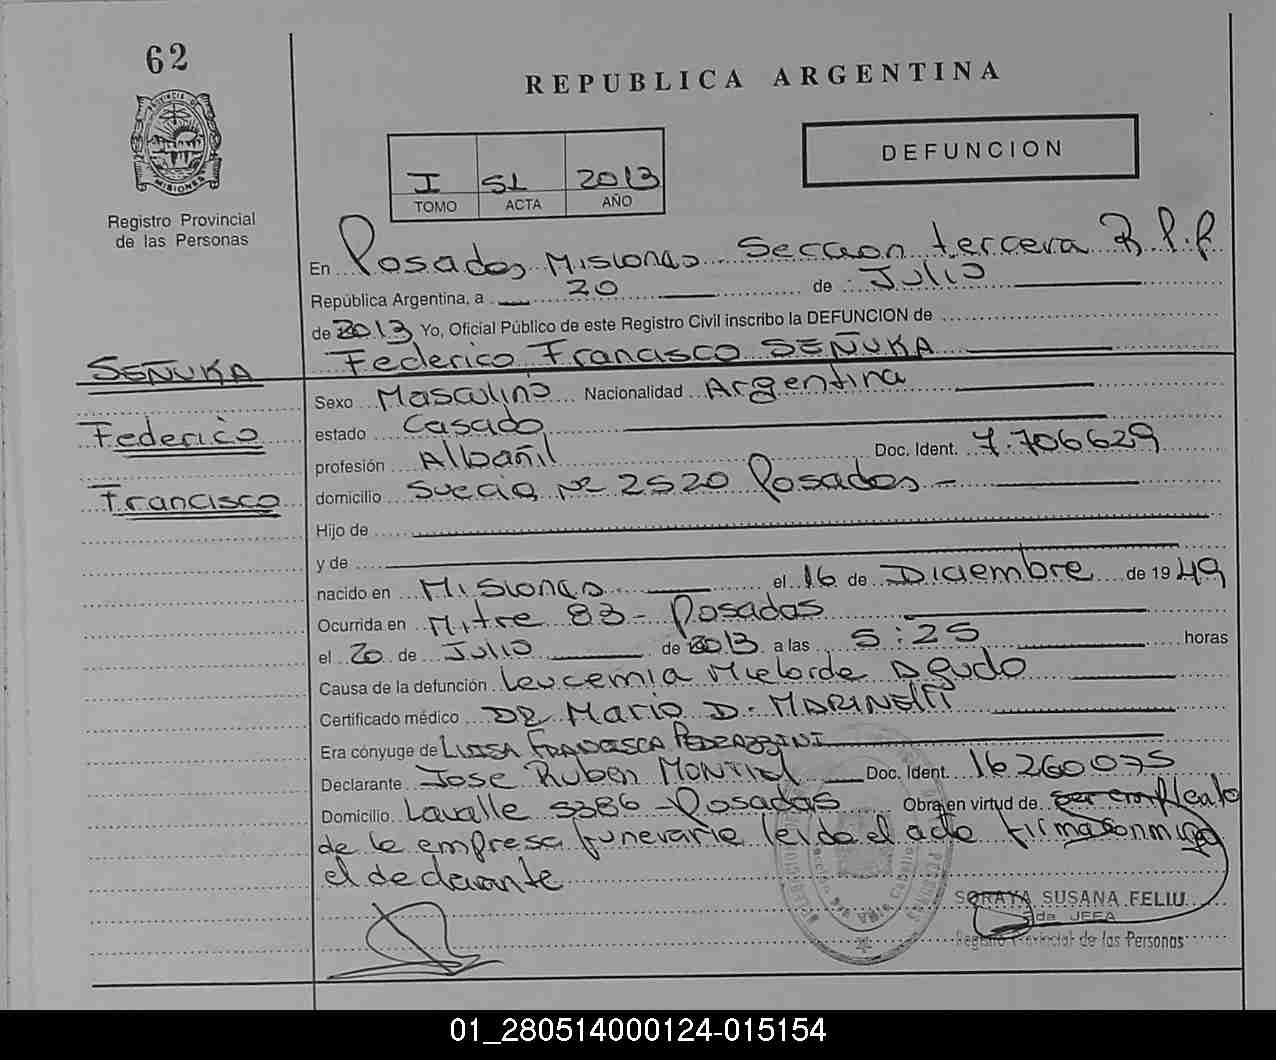 62
REPUBLICA ARGENTINA
PROVINCIA DE MISIONES
Registro Provincial
de las Personas
I 51 2013
TOMO ACTA AÑO
DEFUNCION
En Posadas Misiones Seccion tercera R.P.P
República Argentina, a 20 de Julio
de 2013 Yo, Oficial Público de este Registro Civil inscribo la DEFUNCION de
SEÑUKA Federico Francisco SEÑUKA
Sexo Masculino Nacionalidad Argentina
Federico
estado Casado
profesión Albañil Doc. Ident. 7.706629
Francisco
domicilio Suecia Nº 2520 Posadas
Hijo de
y de
nacido en Misiones el 16 de Diciembre de 1949
Ocurrida en Mitre 83 - Posadas
el 20 de Julio de 2013 a las 5:25 horas
Causa de la defunción Leucemia Mieloide Aguda
Certificado médico DR Mario D. MARINelli
Era cónyuge de LUISA FRANCISCA PEDRAZZINI
Declarante Jose Ruben MONTIEL Doc. Ident. 16260075
Domicilio Lavalle 5386 - Posadas Obra en virtud de ser empleado
de la empresa funeraria leida el acta firma conmigo
el declarante
SORAYA SUSANA FELIU
2da JEFA
Registro Provincial de las Personas
01_280514000124-015154